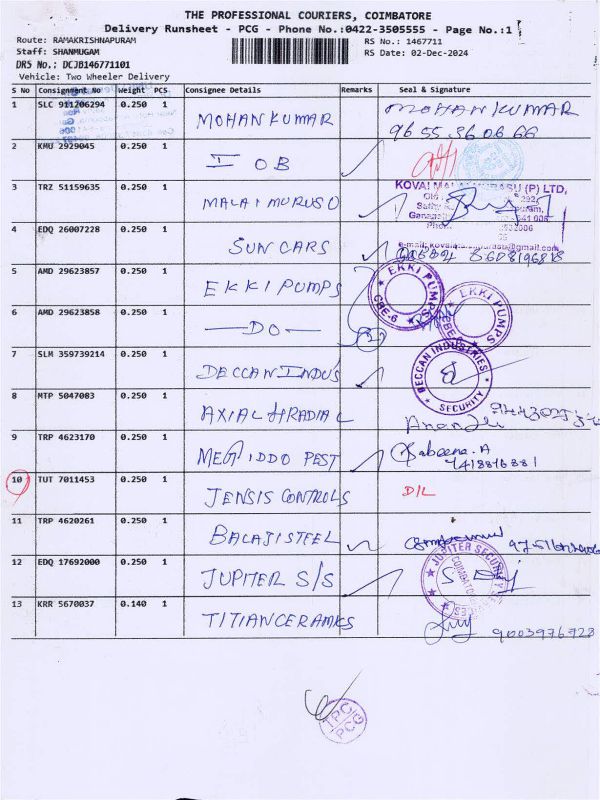 THE PROFESSIONAL COURIERS, COIMBATORE
Delivery Runsheet - PCG - Phone No.:0422-3505555 - Page No.:1
Route: RAMAKRISHNAPURAM
RS No.: 1467711
Staff: SHANMUGAM
RS Date: 02-Dec-2024
DRS No.: DCJB146771101
Vehicle: Two Wheeler Delivery
S No Consignment No Weight PCS Consignee Details Remarks Seal & Signature
1 SLC 911206294 0.250 1 MOHAN KUMAR MOHAN KUMAR
96 55 36 06 66
2 KMU 2929045 0.250 1 I O B
3 TRZ 51159635 0.250 1 MALAI MURUSU KOVAI MALAI MURASU (P) LTD,
4 EDQ 26007228 0.250 1 SUN CARS
5 AMD 29623857 0.250 1 EKKI PUMPS EKKI PUMPS CBE-6
6 AMD 29623858 0.250 1 —DO— EKKI PUMPS
7 SLM 359739214 0.250 1 DECCAN INDUS DECCAN INDUSTRIES SECURITY
8 MTP 5047083 0.250 1 AXIAL & RADIAL
9 TRP 4623170 0.250 1 MEGIDDO PEST Sabeena. A
10 TUT 7011453 0.250 1 JENSIS CONTROLS D/L
11 TRP 4620261 0.250 1 BALAJI STEEL
12 EDQ 17692000 0.250 1 JUPITER S/S JUPITER SECURITY
13 KRR 5670037 0.140 1 TITIAN CERAMICS
9003976728
PCG